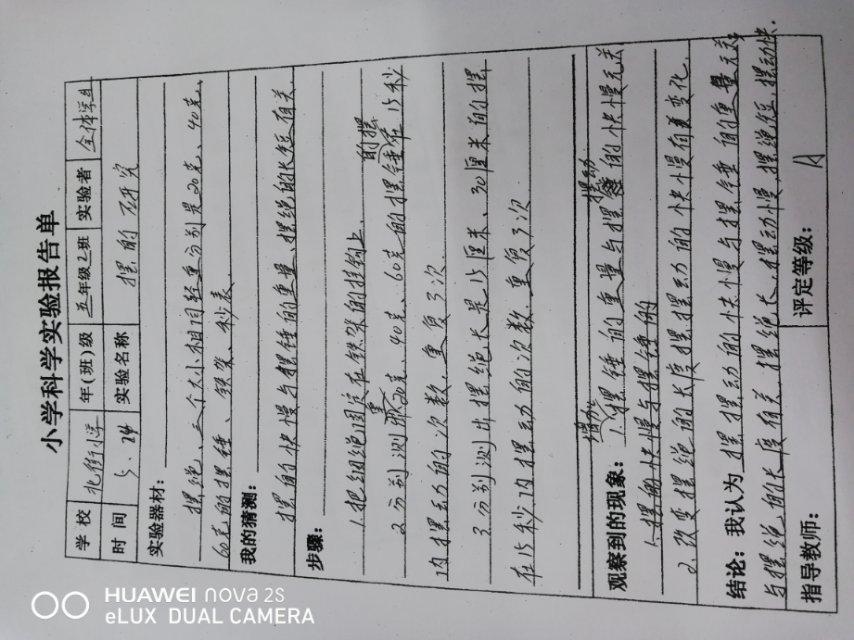 小学科学实验报告单
学校 北街小学 年(班)级 五年级2班 实验者 全体学生
时间 5.24 实验名称 摆的研究
实验器材:
摆绳、三个大小相同轻重分别是20克、40克、
60克的摆锤、铁架、秒表.
我的猜测:
摆的快慢与摆锤的重量、摆绳的长短有关
步骤:
1.把细绳固定在铁架的挂钩上.
2.分别测重20克、40克、60克的摆锤的摆在15秒
内摆动的次数,重复3次.
3.分别测出摆绳长是15厘米、30厘米的摆
在15秒内摆动的次数,重复3次
观察到的现象:1.增加摆锤的重量与摆动的快慢无关
1.摆的快慢与摆锤的
2.改变摆绳的长度摆摆动的快慢有变化.
结论:我认为摆摆动的快慢与摆锤的重量无关
与摆绳的长度有关.摆绳长,摆动慢,摆绳短,摆动快.
指导教师: 评定等级: A
HUAWEI nova 2S
eLUX DUAL CAMERA